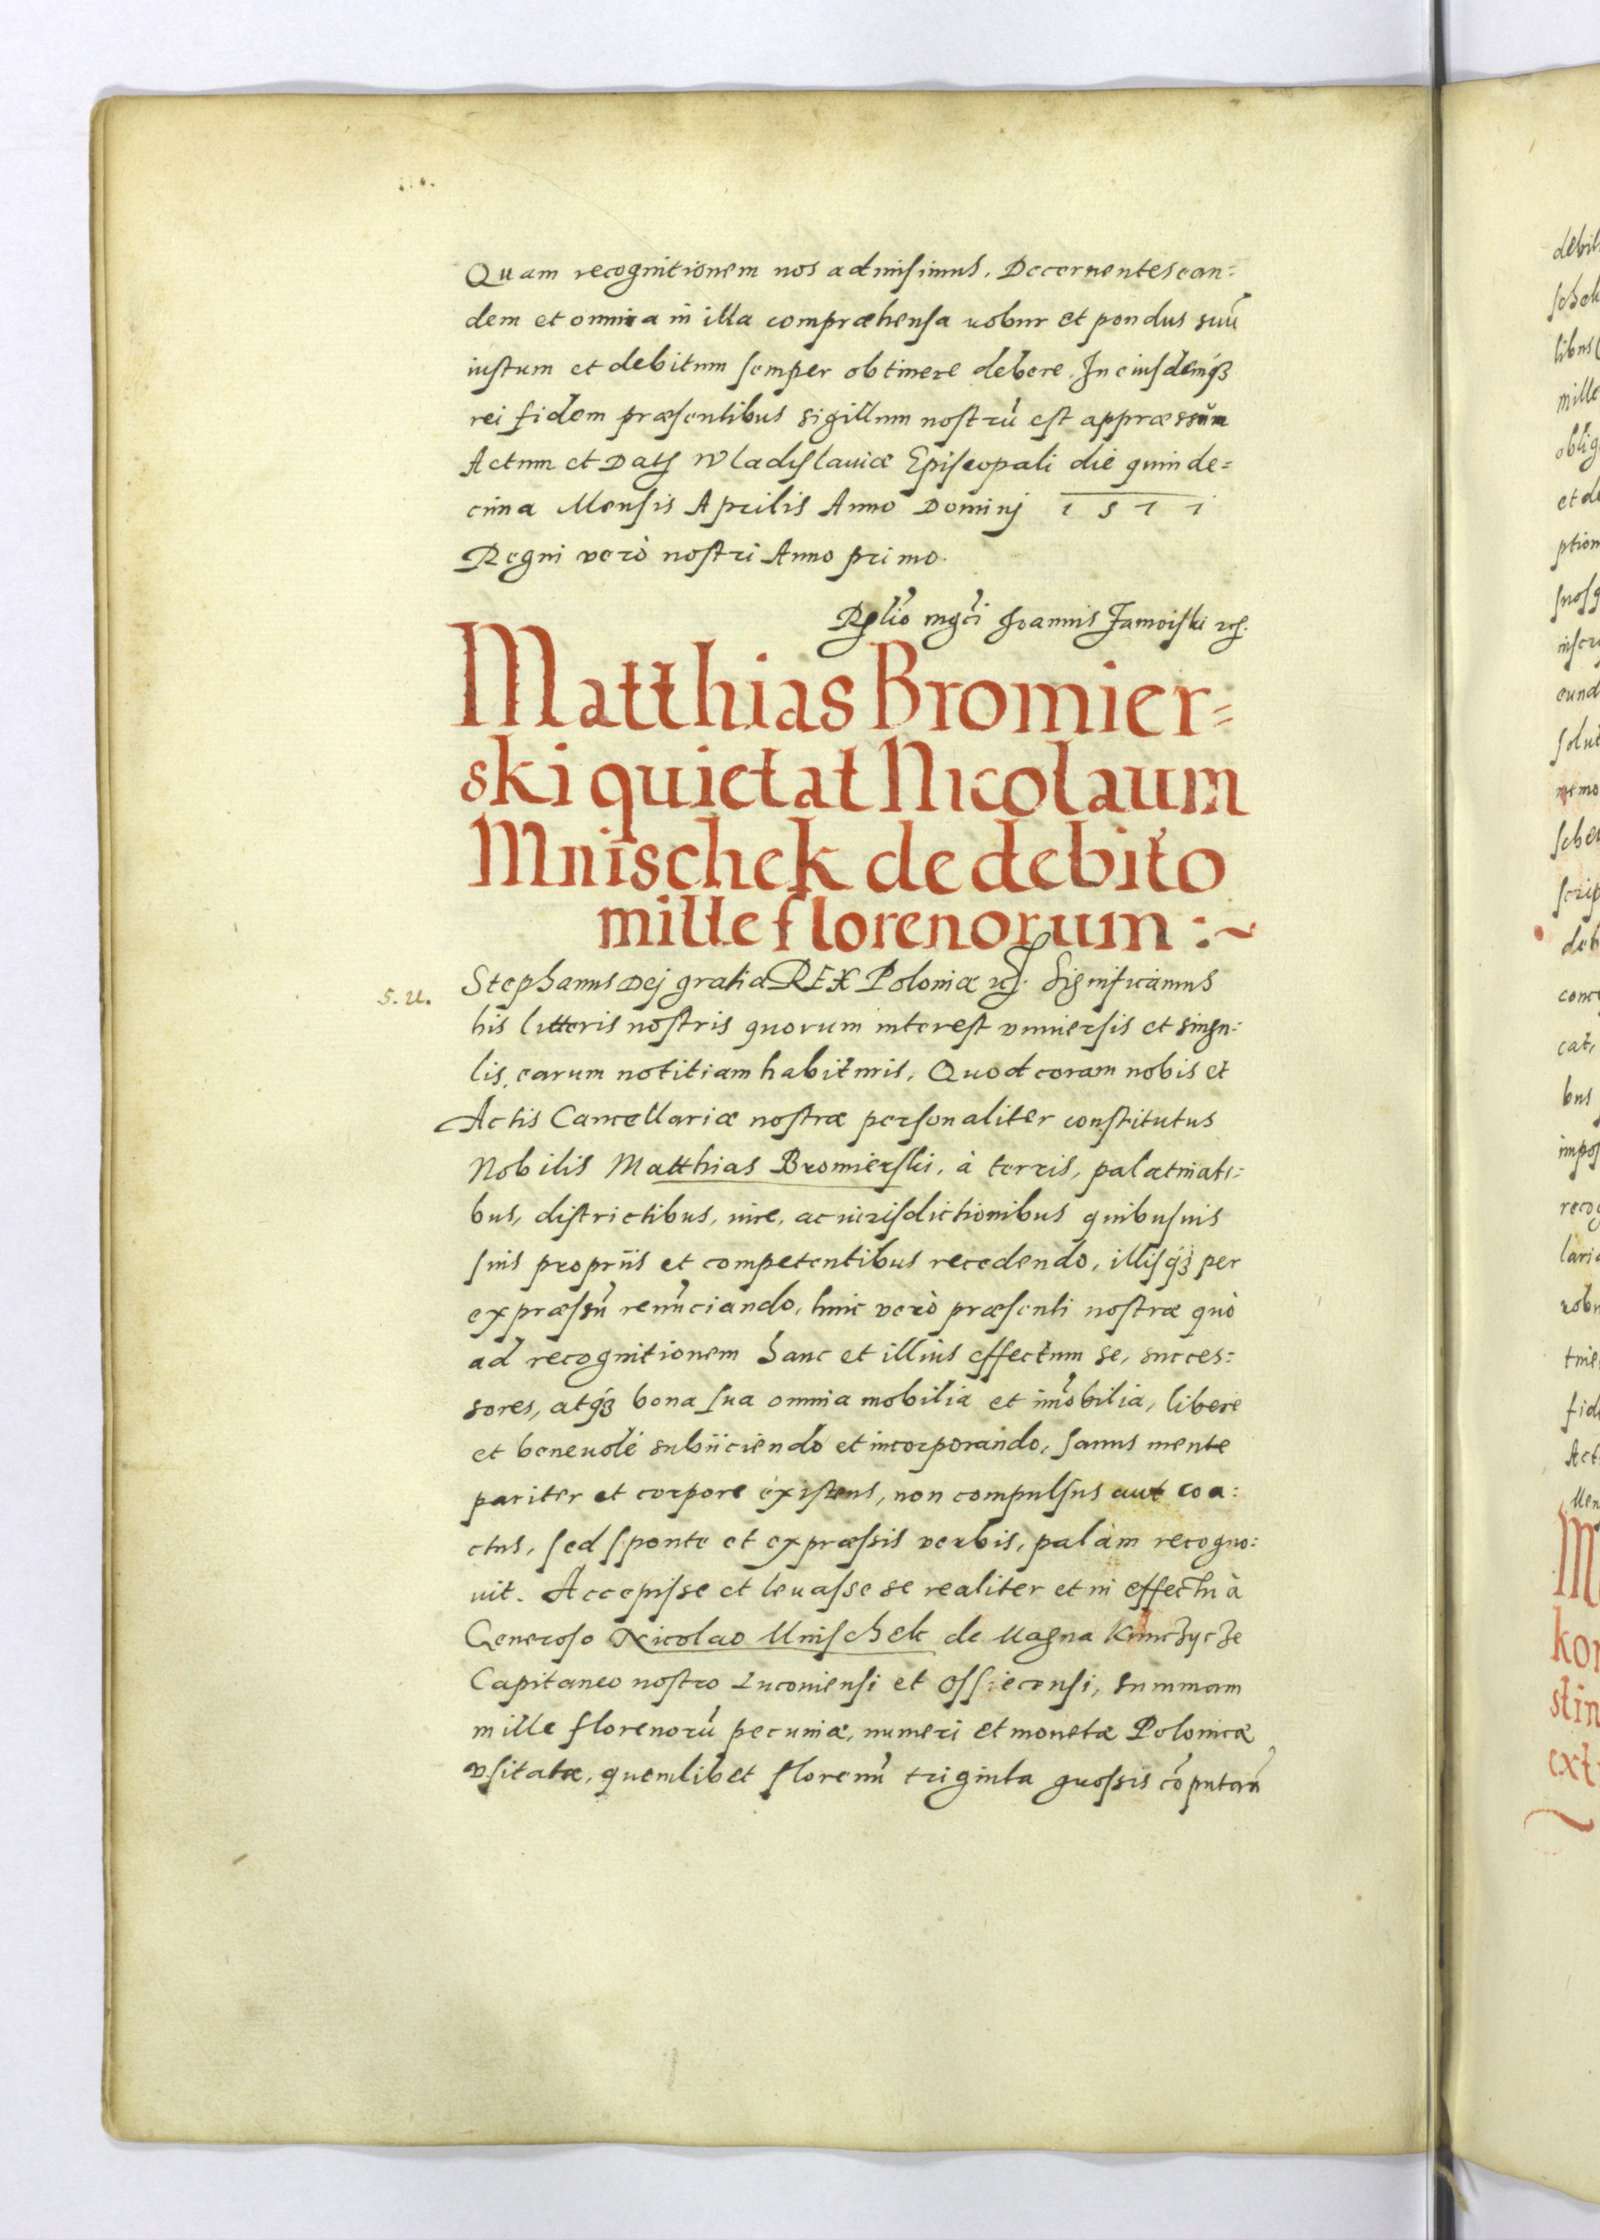 Quam recognitionem nos admisimus. Decernentes ean=
dem et omnia in illa compræhensa robur et pondus suū
iustum et debitum semper obtinere debere. In eiusdemq́ꝫ
rei fidem præsentibus sigillum nostrū est appræssum
Actum et Dat Wladislauiæ Episcopali die quinde=
cima Mensis Aprilis Anno Dominj 1577
Regni verò nostri Anno primo.
Relio mgci Joannis Zamoiski
Matthias Bromier=
ski quietat Nicolaum
Mnischek de debito
mille florenorum :~
Stephanus Dej gratia REX Poloniæ Significamus
his litteris nostris quorum interest vniuersis et singu=
lis, earum notitiam habituris. Quod coram nobis et
Actis Cancellariæ nostræ personaliter constitutus
Nobilis Matthias Bromierski, à terris, palatinati=
bus, districtibus, iure, ac iurisdictionibus quibusuis
suis proprijs et competentibus recedendo, illisq́ꝫ per
expræssū renūciando, huic verò præsenti nostræ quò
ad recognitionem hanc et illius effectum se, succes=
sores, atq́ꝫ bona sua omnia mobilia et imobilia, liberè
et beneuolè subijciendo et incorporando, sanus mente
pariter et corpore existens, non compulsus aut coa=
ctus, sed sponte et expræssis verbis, palàm recogno=
uit. Accepisse et leuasse se realiter et in effectu à
Generoso Nicolao Mnischek de Magna Kunczycze
Capitaneo nostro Luconiensi et Ossiecensi, summam
mille florenorū pecuniæ, numeri et monetæ Polonicæ
vsitatæ, quemlibet florenū triginta grossis cōputan
5. u.